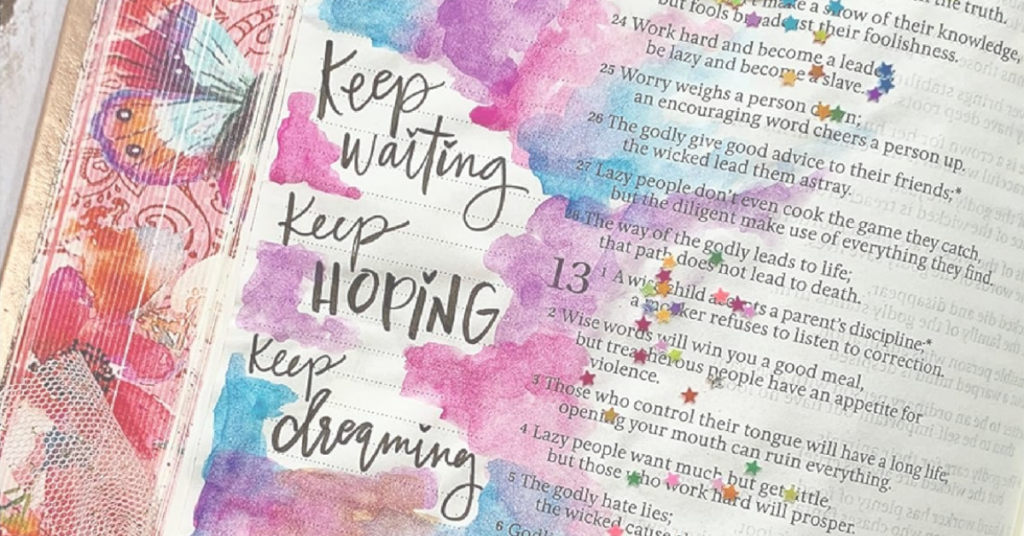 Keep
waiting
Keep
HOPING
Keep
dreaming
the truth.
make a show of their knowledge,
but fools broadcast their foolishness.
24 Work hard and become a leader;
be lazy and become a slave.
25 Worry weighs a person down;
an encouraging word cheers a person up.
26 The godly give good advice to their friends;*
the wicked lead them astray.
27 Lazy people don't even cook the game they catch,
but the diligent make use of everything they find.
28 The way of the godly leads to life;
that path does not lead to death.
13 1 A wise child accepts a parent's discipline;*
a mocker refuses to listen to correction.
2 Wise words will win you a good meal,
but treacherous people have an appetite for
violence.
3 Those who control their tongue will have a long life;
opening your mouth can ruin everything.
4 Lazy people want much but get little,
but those who work hard will prosper.
5 The godly hate lies;
the wicked cause
6 Godl